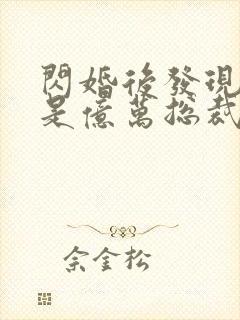 閃婚後發現
是億萬總裁
佘金松